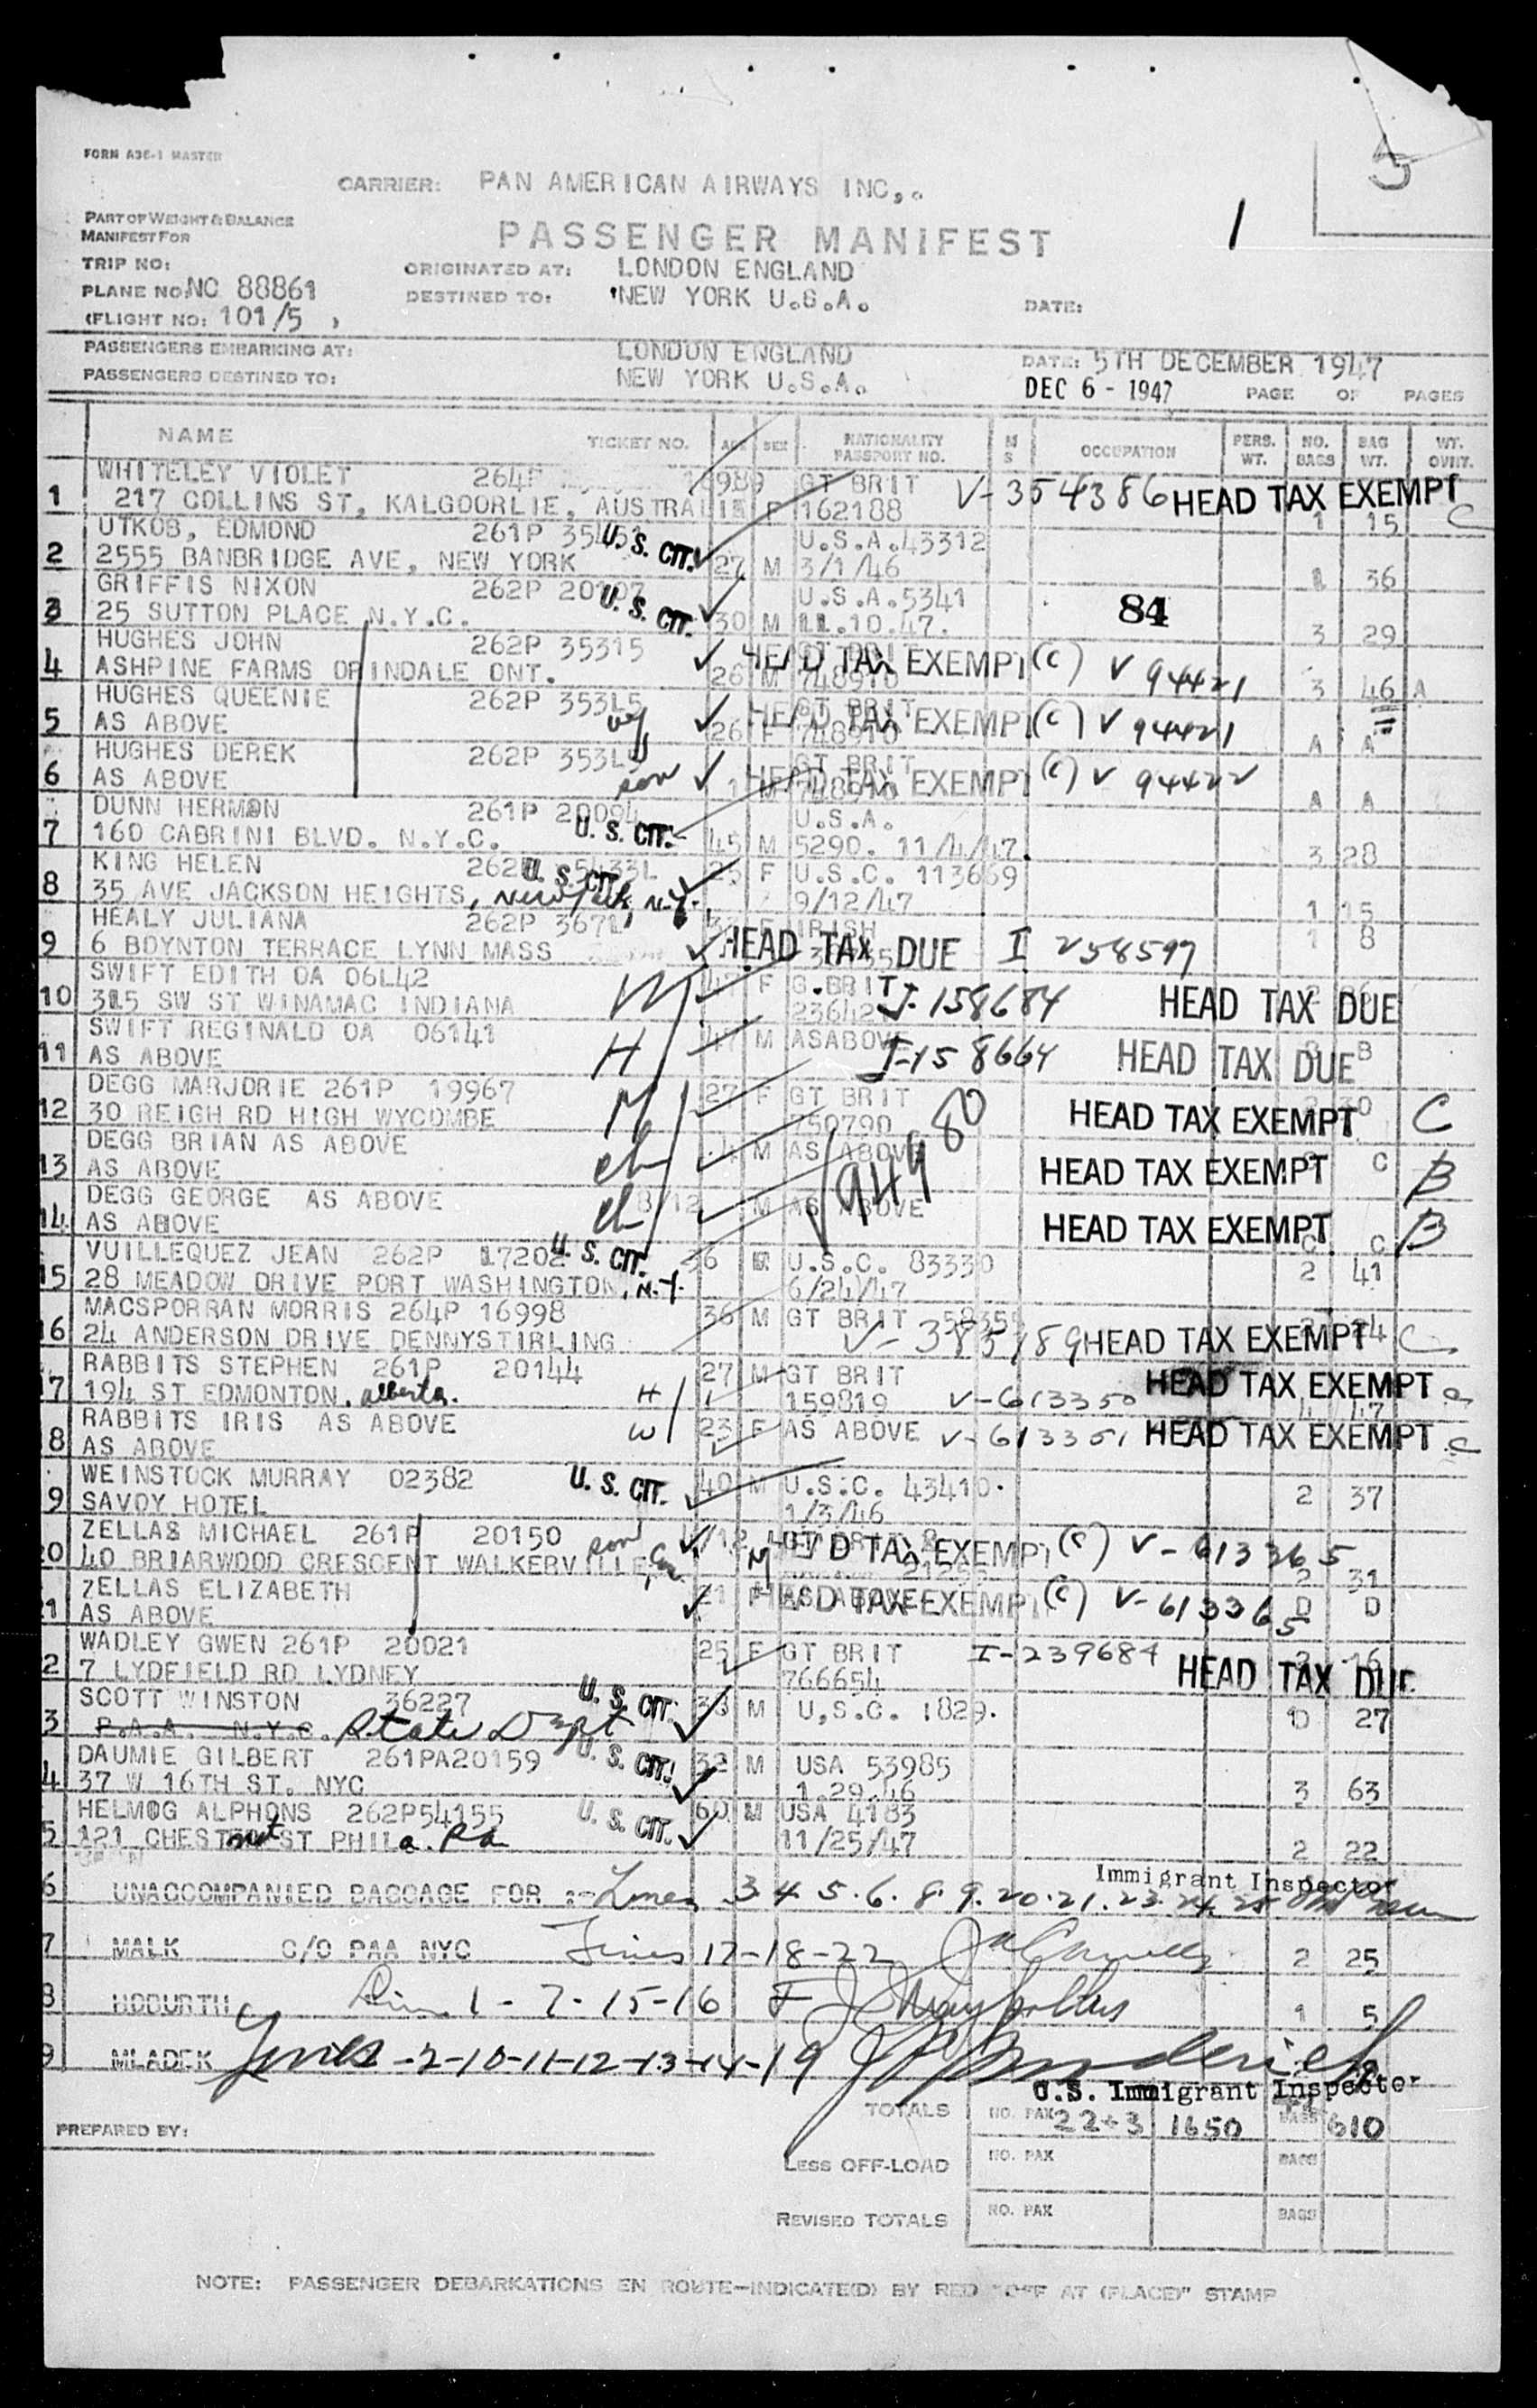 5
FORM A36-1 MASTER
CARRIER: PAN AMERICAN AIRWAYS INC,.
PART OF WEIGHT & BALANCE
MANIFEST FOR
PASSENGER MANIFEST 1
TRIP NO: ORIGINATED AT: LONDON ENGLAND
PLANE NO: NC 88861 DESTINED TO: NEW YORK U.S.A. DATE:
(FLIGHT NO: 101/5 )
PASSENGERS EMBARKING AT: LONDON ENGLAND DATE: 5TH DECEMBER 1947
PASSENGERS DESTINED TO: NEW YORK U.S.A. DEC 6 - 1947 PAGE OF PAGES
NAME TICKET NO. AGE SEX NATIONALITY PASSPORT NO. M S OCCUPATION PERS. WT. NO. BAGS BAG WT. WT. OVNT.
WHITELEY VIOLET 264P GT BRIT V-354386 HEAD TAX EXEMPT C
1 217 COLLINS ST, KALGOORLIE, AUSTRALIA F 162188 1 15
UTKOB, EDMOND 261P U.S. CIT. U.S.A. 43312
2 2555 BANBRIDGE AVE, NEW YORK 27 M 3/1/46 1 36
GRIFFIS NIXON 262P 20107 U.S. CIT. U.S.A. 5341 84
3 25 SUTTON PLACE N.Y.C. 30 M 11.10.47. 3 29
HUGHES JOHN 262P 35315 GT BRIT HEAD TAX EXEMPT (C) V 94421
4 ASHPINE FARMS ORINDALE ONT. 26 M 748910 3 46 A
HUGHES QUEENIE 262P 353L5 GT BRIT HEAD TAX EXEMPT (C) V 94421
5 AS ABOVE 26 F 748910 A A
HUGHES DEREK 262P 353L5 son GT BRIT HEAD TAX EXEMPT (C) V 94422
6 AS ABOVE 1 M 748910 A A
DUNN HERMON 261P 20094 U.S. CIT. U.S.A.
7 160 CABRINI BLVD. N.Y.C. 45 M 5290. 11/4/47. 3 28
KING HELEN U.S. CIT. 25 F U.S.C. 113669
8 35 AVE JACKSON HEIGHTS, New York, N.Y. 9/12/47 1 15
HEALY JULIANA 262P 367L F IRISH 1 8
9 6 BOYNTON TERRACE LYNN MASS HEAD TAX DUE I 258597
SWIFT EDITH OA 06L42 W 47 F G.BRIT I-158684 HEAD TAX DUE
10 315 SW ST WINAMAC INDIANA
SWIFT REGINALD OA 06141 H 47 M AS ABOVE I-158664 HEAD TAX DUE
11 AS ABOVE B
DEGG MARJORIE 261P 19967 M 27 F GT BRIT HEAD TAX EXEMPT C
12 30 REIGH RD HIGH WYCOMBE 750790
DEGG BRIAN AS ABOVE ch 4 M AS ABOVE V94980 HEAD TAX EXEMPT B
13 AS ABOVE C
DEGG GEORGE AS ABOVE ch 8/12 M AS ABOVE HEAD TAX EXEMPT B
14 AS ABOVE C C
VUILLEQUEZ JEAN 262P 17202 U.S. CIT. 36 U.S.C. 83330
15 28 MEADOW DRIVE PORT WASHINGTON, N.Y. 6/24/47 2 41
MACSPORRAN MORRIS 264P 16998 36 M GT BRIT 58355
16 24 ANDERSON DRIVE DENNYSTIRLING V-385189 HEAD TAX EXEMPT C
RABBITS STEPHEN 261P 20144 27 M GT BRIT HEAD TAX EXEMPT C
7 194 ST EDMONTON, Alberta. H 159819 V-613350 4 47
RABBITS IRIS AS ABOVE W 23 F AS ABOVE V-613351 HEAD TAX EXEMPT C
8 AS ABOVE
WEINSTOCK MURRAY 02382 U.S. CIT. 40 M U.S.C. 43410.
9 SAVOY HOTEL 1/3/46 2 37
ZELLAS MICHAEL 261P 20150 son M HEAD TAX EXEMPT (C) V-613365
20 40 BRIARWOOD CRESCENT WALKERVILLE, Can. 2 31
ZELLAS ELIZABETH 21 F AS ABOVE HEAD TAX EXEMPT (C) V-613365 D D
1 AS ABOVE
WADLEY GWEN 261P 20021 25 F GT BRIT I-239684 HEAD TAX DUE
2 7 LYDFIELD RD LYDNEY 766654 2 16
SCOTT WINSTON 36227 U.S. CIT. 38 M U,S.C. 1829.
3 P.A.A. N.Y.C. State Dept 27
DAUMIE GILBERT 261PA20159 U.S. CIT. 32 M USA 53985
4 37 W 16TH ST. NYC 1.29.46 3 63
HELMOG ALPHONS 262P54155 U.S. CIT. 60 M USA 4183
5 121 CHESTnut ST PHILa. Pa 11/25/47 2 22
Immigrant Inspector
6 UNACCOMPANIED BAGGAGE FOR :- Lines 3.4.5.6.8.9.20.21.23.24.25
7 MALK C/O PAA NYC Lines 17-18-22 2 25
8 HOBURTH Lines 1-7-15-16 1 5
9 MLADEK Lines -2-10-11-12-13-14-19
U.S. Immigrant Inspector
TOTALS NO. PAX 22+3 1650 BAGS 610
PREPARED BY:
LESS OFF-LOAD NO. PAX BAGS
REVISED TOTALS NO. PAX BAGS
NOTE: PASSENGER DEBARKATIONS EN ROUTE—INDICATE(D) BY RED "OFF AT (PLACE)" STAMP